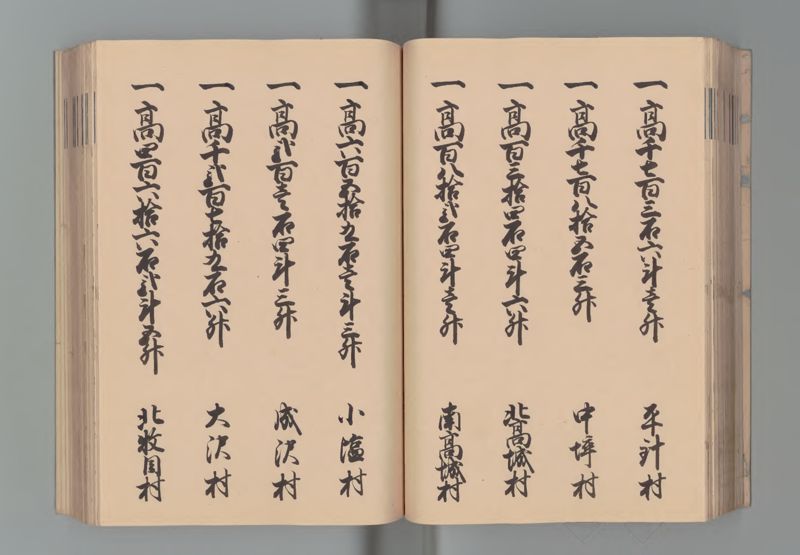 一高千七百三石六斗壱升 平針村
一高千七百八拾五石三升 中坪村
一高百三拾四石四斗六升 北高城村
一高百八拾弐石四斗壱升 南高城村
一高六百五拾九石壱斗三升 小塩村
一高弐百壱石四斗三升 成沢村
一高千弐百七拾九石六升 大沢村
一高四百六拾六石弐斗五升 北牧目村